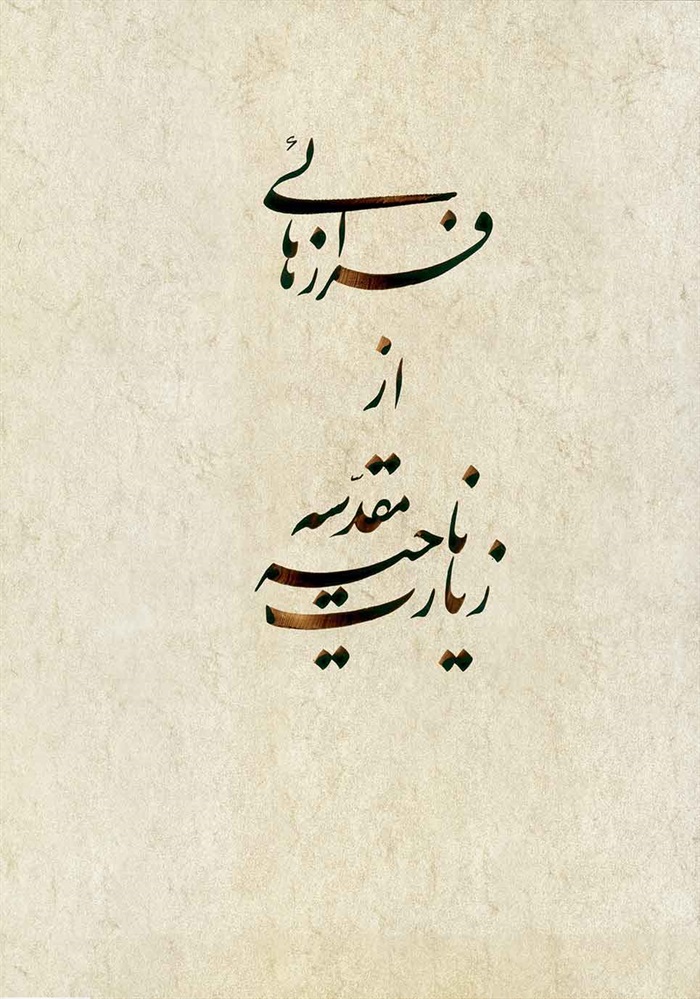 فرازهائی
از
زیارت ناحیه مقدّسه